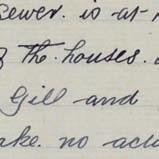 sewer. is at
of the. houses.
Gill and
no